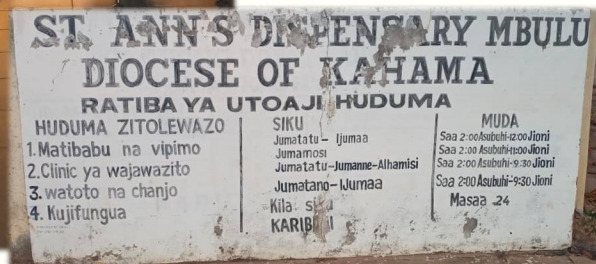 ST. ANN'S DISPENSARY MBULU
DIOCESE OF KAHAMA
RATIBA YA UTOAJI HUDUMA
HUDUMA ZITOLEWAZO
1. Matibabu na vipimo
2. Clinic ya wajawazito
3. watoto na chanjo
4. Kujifungua
SIKU
Jumatatu - Ijumaa
Jumamosi
Jumatatu-Jumanne-Alhamisi
Jumatano-Ijumaa
Kila siku
KARIBUNI
MUDA
Saa 2:00 Asubuhi-12:00 Jioni
Saa 2:00 Asubuhi-11:00 Jioni
Saa 2:00 Asubuhi-9:30 Jioni
Saa 2:00 Asubuhi-9:30 Jioni
Masaa 24